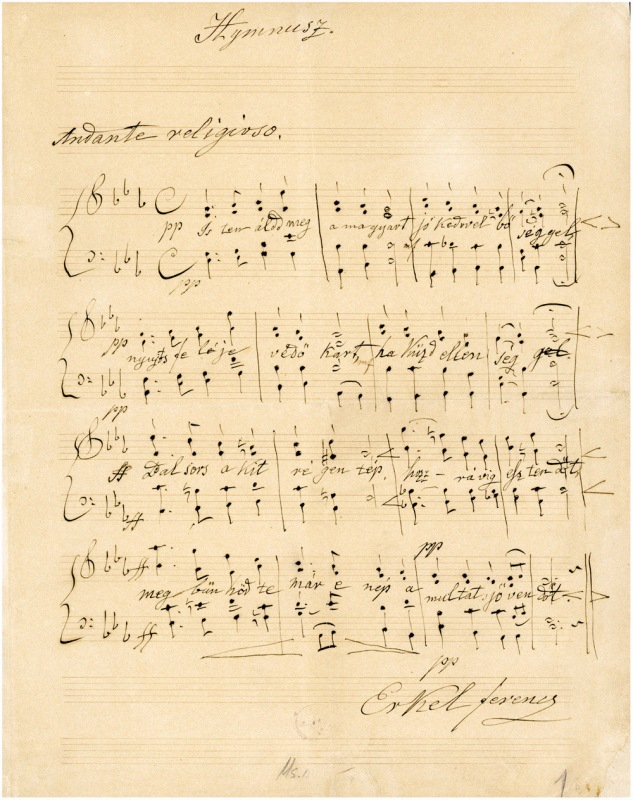 Hymnusz.
Andante religioso.
pp Is ten áldd meg a magyart jó kedvvel bő séggel,
pp
pp nyujts fe lé je védő kart, ha küzd ellen ség gel.
pp
ff Bal sors a kit ré gen tép, hoz - rá vig esz ten dőt,
ff
pp
ff meg bűn hőd te már e nép a multat, jö ven dőt.
ff
pp
Erkel ferencz
Ms.
1